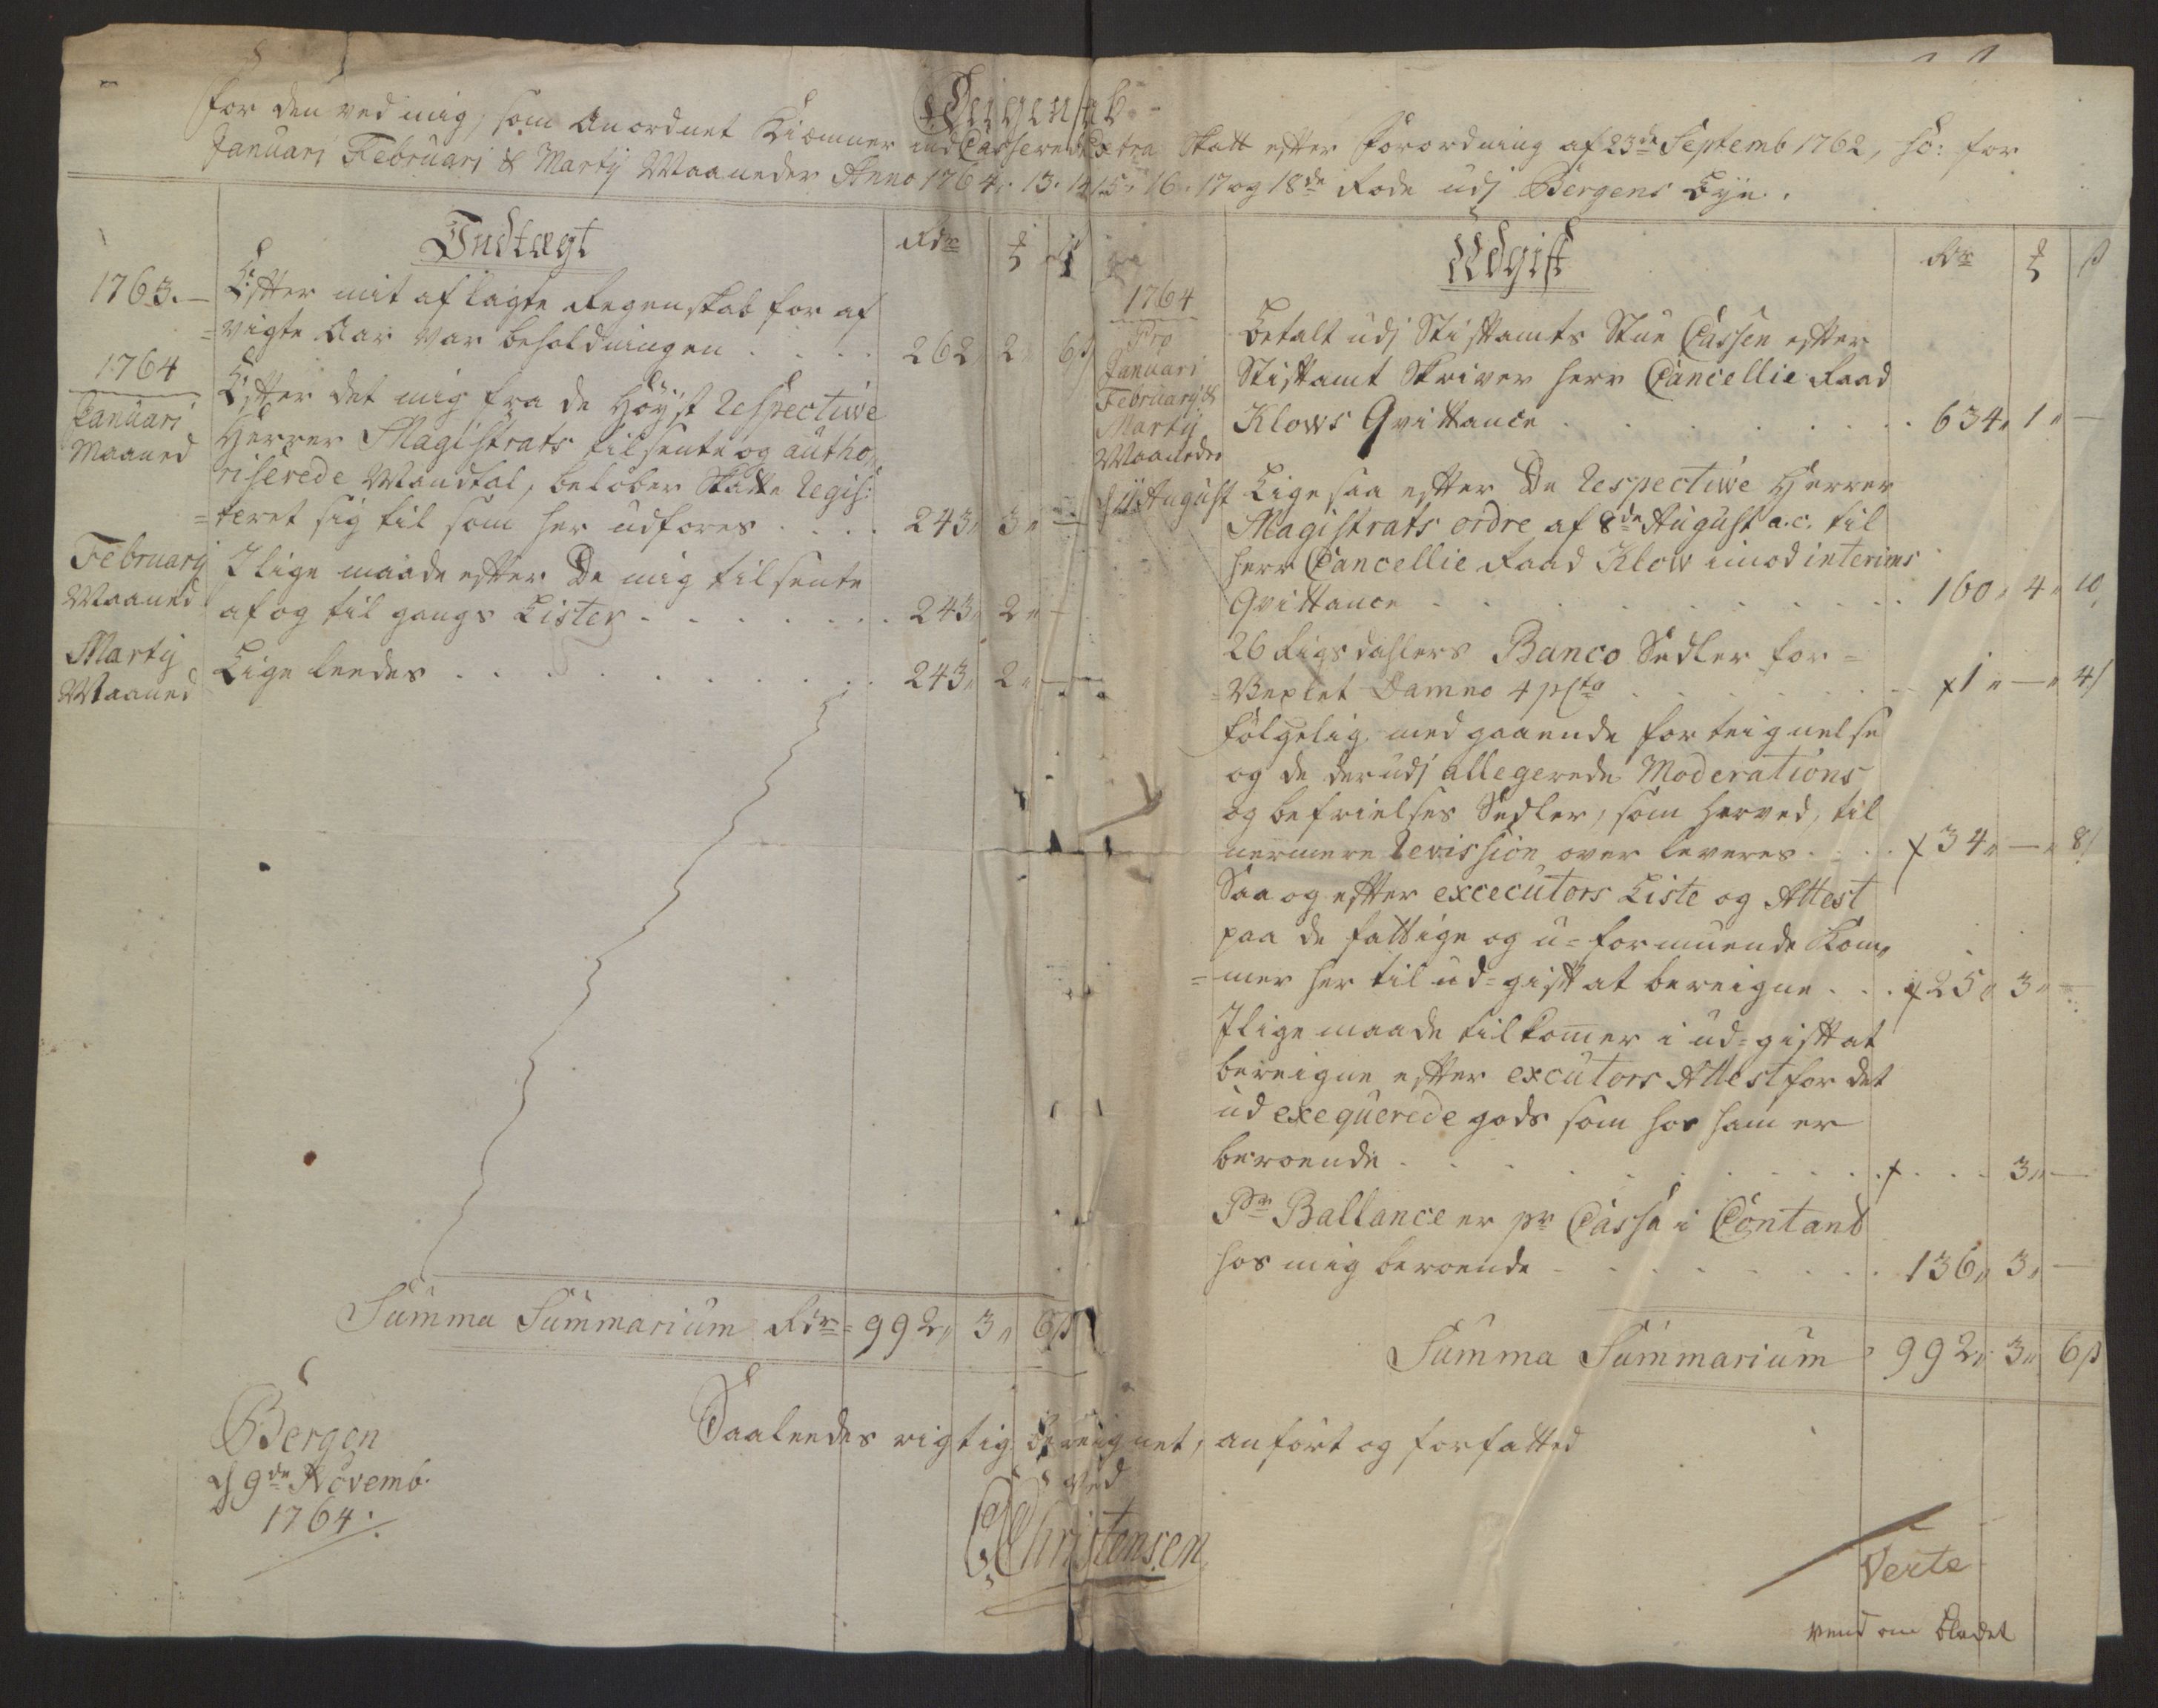 Reigenskab
for den ved mig, som Anordnet Kiæmner ind Casserede Extra Skatt efter Forordning af 23de Septemb 1762, so: for
Januari Februari & Martij Maaneder Anno 1764. 13. 14. 15. 16. 17 og 18de Rode udj Bergens Bye.
Indtægt
Rdr
1763. Efter mit aflagte Regenskab for af
=vigte Aar var beholdningen . . . . 262 2 6 ß
1764
Januari
Maaned
Efter det mig fra de Höyst Respectiwe
Herrer Magistrats tilsente og autho
riserede Mandtal, beløber Skatte Regis:
=teret sig til som her udføres . . . . 243 3 —
Februarij
Maaned
I lige maade efter De mig tilsente
af og til gangs Lister . . . . . . . 243 2 —
Martij
Maaned
Lige leedes . . . . . . . . . . . 243 2 —
Summa Summarium Rdr = 992 3 6 ß
Udgift
Rdr ß
1764
Pro
Januari
Februarij &
Martij
Maaneder
Betalt udj Stiftamts Stue Cassen efter
Stiftamt Skriver herr Cancellie Raad
Klows Qvittance . . . . . . . . 634 1 —
d 11 August Lige saa efter De Respectiwe Herrer
Magistrats ordre af 8de August a.c. til
herr Cancellie Raad Klow imod interims
Qvittance . . . . . . . . . . 160 4 10
26 Rigsdahlers Banco Sedler for=
=Vexlet Damno 4 pCto . . . . . . x 1 — 4
følgelig medgaaende forteignelse
og de derudj allegerede Moderations
og befrielses Sedler, som herved, til
nermere Revission over leveres . . . . x 34 — 8
Saa og efter excecutors Liste og Attest
paa de fattige og u=formuende Kom
=mer her til ud=gift at bereigne . . . x 25 3 —
I lige maade tilkomer i ud=gift at
bereigne efter excutors Attest for det
ud exequerede gods som hos ham er
beroende . . . . . . . . . . x . . . 3 —
Pr Ballance er pr Cassa i Contant
hos mig beroende . . . . . . . . 136 3 —
Summa Summarium 992 3 6 ß
Bergen
d 9de Novemb.
1764.
Saaledes rigtig bereignet, anført og forfatted
ved
Christensen
Verte
vend om Bladet